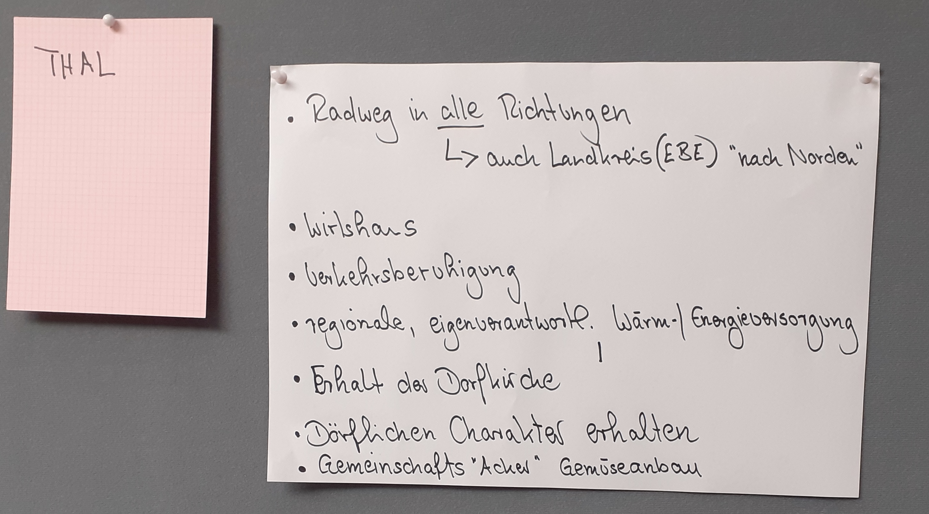 THAL
• Radweg in alle Richtungen
↳ auch Landkreis (EBE) "nach Norden"
• Wirtshaus
• Verkehrsberuhigung
• regionale, eigenverantwortl. Wärm-/Energieversorgung
• Erhalt der Dorfkirche
• Dörflichen Charakter erhalten
• Gemeinschafts "Acker" Gemüseanbau